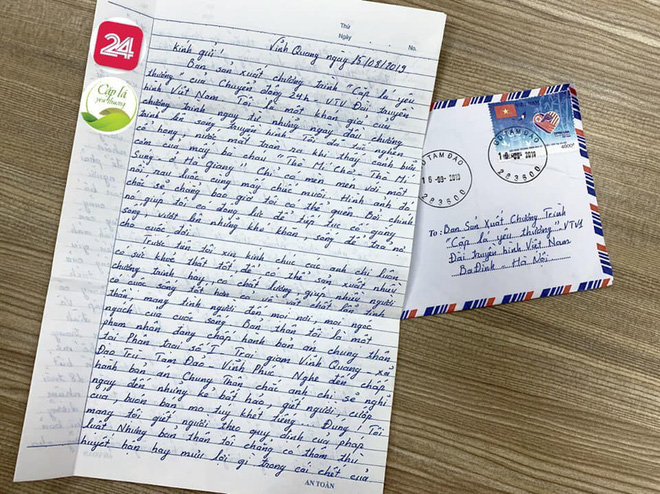 24
Cặp lá
yêu thương
Thứ
Ngày
No.
Vĩnh Quang ngày 15/08/2019
Kính gửi!
Ban sản xuất chương trình "Cặp lá yêu
thương" của Chuyển động 24h - VTV Đài truyền
hình Việt Nam. Tôi là một khán giả của
chương trình ngay từ những ngày đầu chương
trình lên sóng truyền hình. Tôi đã từng nghẹn
cổ họng, nước mắt tràn mi khi thấy cảnh hồi
cơm của mấy bà cháu "Thò Mí Chở - Thò Mí
Sung ở Hà Giang. Chỉ có mèn mén với một
nồi rau luộc cùng mấy chục mười. Hình ảnh đó
chắc sẽ chẳng bao giờ tôi có thể quên. Bởi chính
nó giúp tôi có động lực để tiếp tục cố gắng
sống, vượt lên những khó khăn, sống để trả nợ
cho cuộc đời.
Trước tiên tôi xin kính chúc các anh chị luôn
có sức khoẻ thật tốt để có thể sản xuất nhiều
chương trình hay, có chất lượng, giúp nhiều người
có cuộc sống tốt hơn có
thần, mang tình người đến mọi nơi, mọi ngóc
ngách của cuộc sống. Bản thân tôi là một
phạm nhân đang chấp hành bản án chung thân
tại Phân trại số 1 Trại giam Vĩnh Quang xã
Đạo Trù - Tam Đảo - Vĩnh Phúc. Nghe đến chấp
hành bản án Chung Thân chắc anh chị sẽ nghĩ
ngay đến những kẻ bất hảo, giết người cướp
của buôn bán ma tuý khét tiếng... Đúng! Tôi
mang tội giết người theo quy định của pháp
luật. Nhưng bản thân tôi chẳng có thâm thù
huyết hận hay mưu lợi gì trong cái chết của
AN TOÀN
TAM ĐẢO
283500
TAM ĐẢO
283500
To: Ban Sản Xuất Chương Trình
"Cặp lá yêu thương" VTV1
Đài truyền hình Việt Nam
Ba Đình - Hà Nội